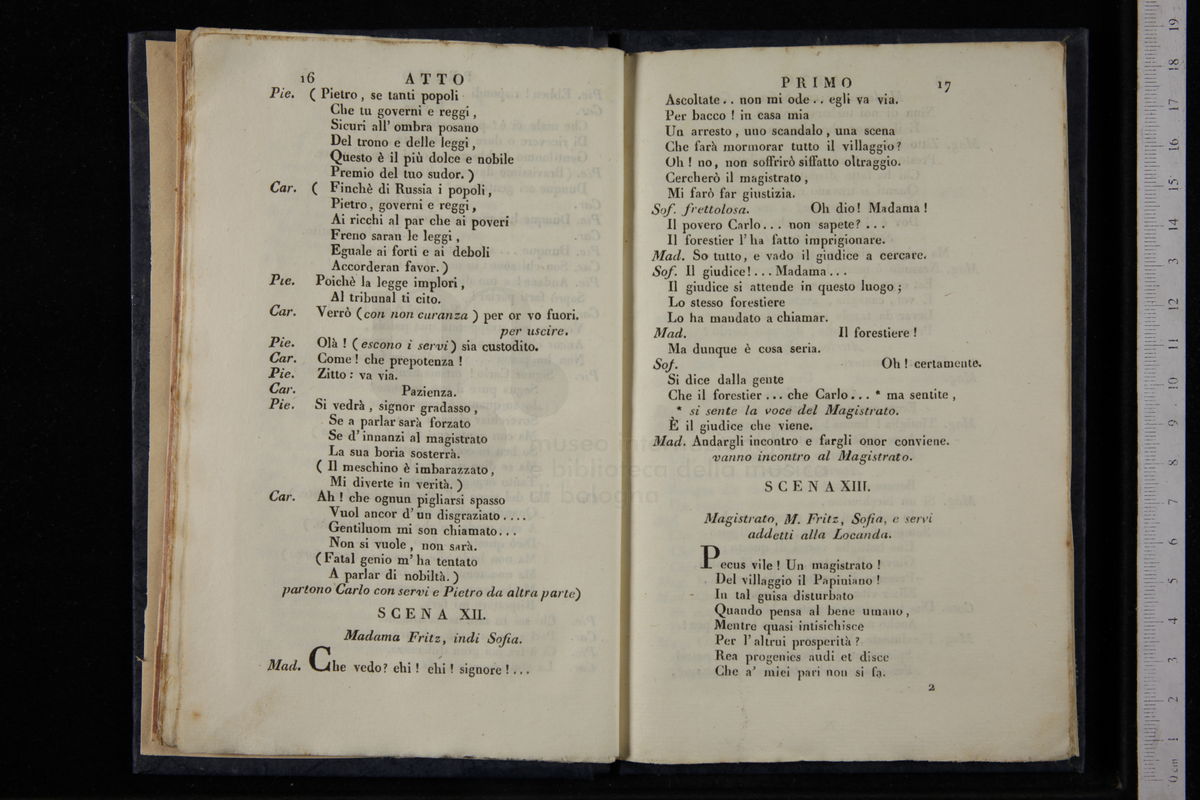 16 ATTO
Pie. ( Pietro , se tanti popoli
Che tu governi e reggi ,
Sicuri all' ombra posano
Del trono e delle leggi ,
Questo è il più dolce e nobile
Premio del tuo sudor. )
Car. ( Finchè di Russia i popoli ,
Pietro , governi e reggi ,
Ai ricchi al par che ai poveri
Freno saran le leggi ,
Eguale ai forti e ai deboli
Accorderan favor. )
Pie. Poichè la legge implori ,
Al tribunal ti cito.
Car. Verrò ( con non curanza ) per or vo fuori.
per uscire.
Pie. Olà ! ( escono i servi ) sia custodito.
Car. Come ! che prepotenza !
Pie. Zitto : va via.
Car. Pazienza.
Pie. Si vedrà , signor gradasso ,
Se a parlar sarà forzato
Se d' innanzi al magistrato
La sua boria sosterrà.
( Il meschino è imbarazzato ,
Mi diverte in verità. )
Car. Ah ! che ognun pigliarsi spasso
Vuol ancor d' un disgraziato ....
Gentiluom mi son chiamato...
Non si vuole , non sarà.
( Fatal genio m' ha tentato
A parlar di nobiltà. )
partono Carlo con servi e Pietro da altra parte)
SCENA XII.
Madama Fritz, indi Sofia.
Mad. Che vedo? ehi ! ehi ! signore ! ...
PRIMO 17
Ascoltate . . non mi ode . . egli va via.
Per bacco ! in casa mia
Un arresto , uno scandalo , una scena
Che farà mormorar tutto il villaggio ?
Oh ! no, non soffrirò siffatto oltraggio.
Cercherò il magistrato ,
Mi farò far giustizia.
Sof. frettolosa. Oh dio! Madama !
Il povero Carlo... non sapete? ...
Il forestier l' ha fatto imprigionare.
Mad. So tutto, e vado il giudice a cercare.
Sof. Il giudice! ... Madama ...
Il giudice si attende in questo luogo ;
Lo stesso forestiere
Lo ha mandato a chiamar.
Mad. Il forestiere !
Ma dunque è cosa seria.
Sof. Oh ! certamente.
Si dice dalla gente
Che il forestier ... che Carlo ... * ma sentite ,
* si sente la voce del Magistrato.
È il giudice che viene.
Mad. Andargli incontro e fargli onor conviene.
vanno incontro al Magistrato.
SCENA XIII.
Magistrato, M. Fritz, Sofia, e servi
addetti alla Locanda.
Pecus vile ! Un magistrato !
Del villaggio il Papiniano !
In tal guisa disturbato
Quando pensa al bene umano ,
Mentre quasi intisichisce
Per l' altrui prosperità ?
Rea progenies audi et disce
Che a' miei pari non si fa.
2
museo
e biblioteca della musica
di bologna